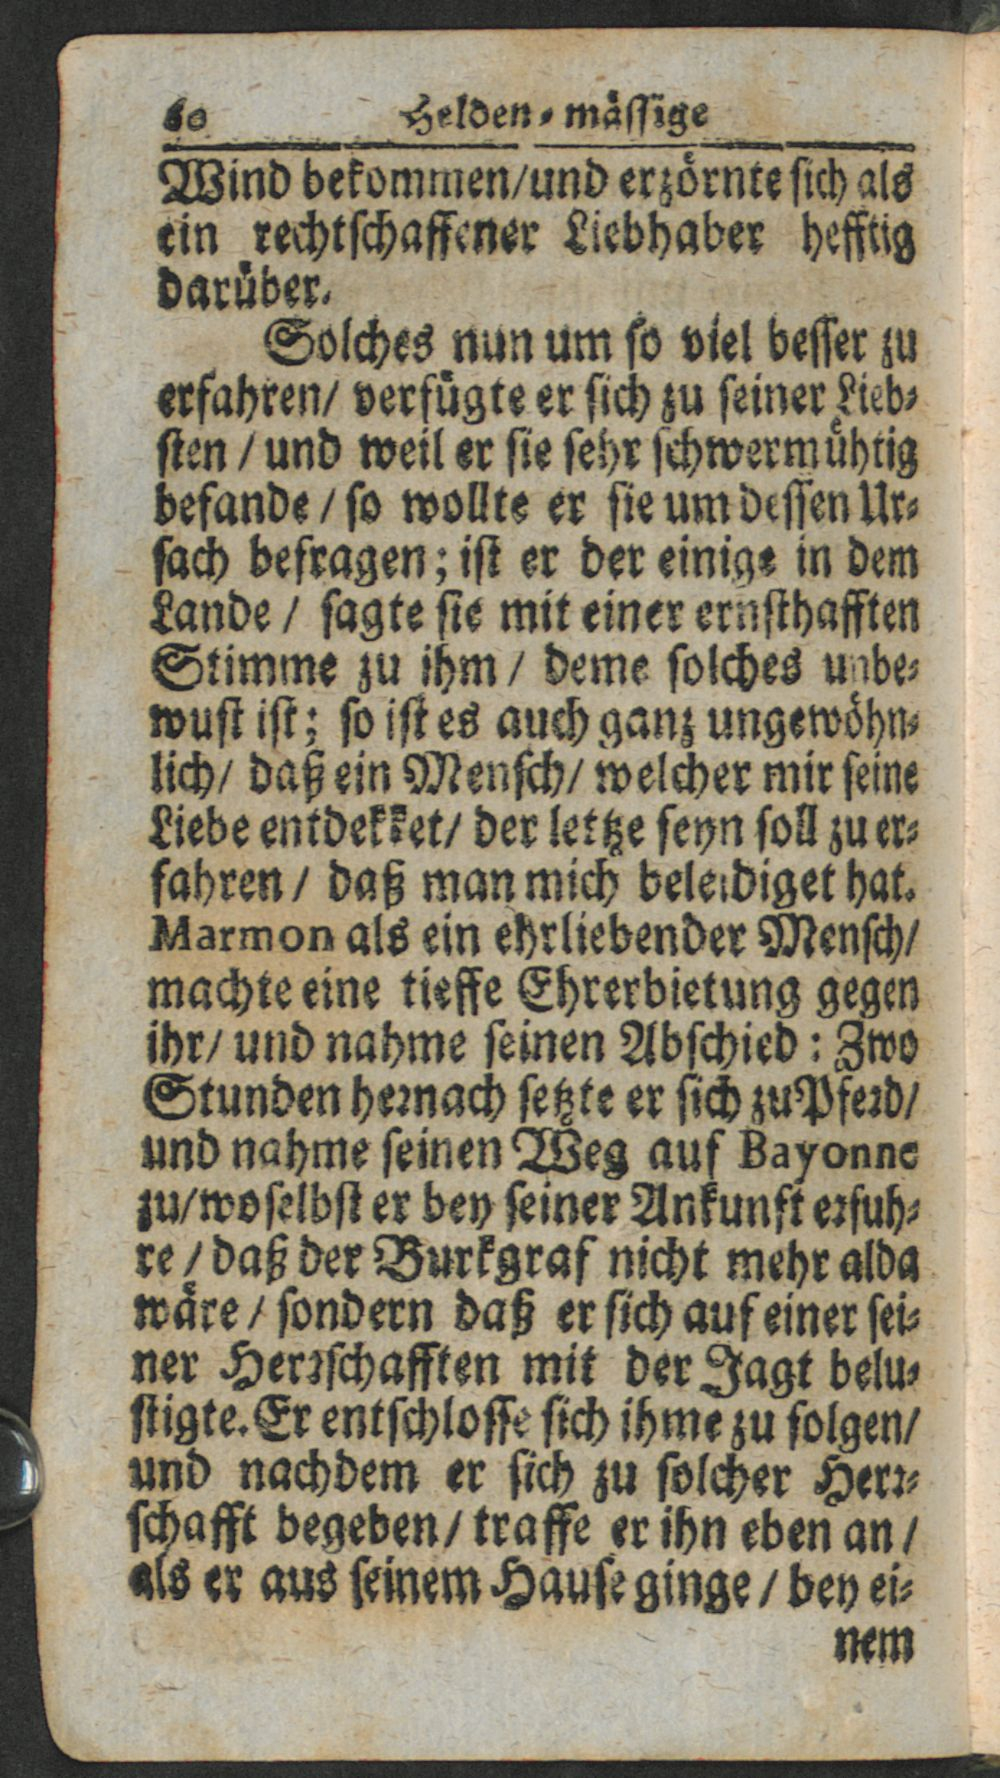 60 Helden⸗mäſſige
Wind bekommen/und erzörnte ſich als
ein rechtſchaffener Liebhaber hefftig
darüber.
Solches nun um ſo viel beſſer zu
erfahren/ verfügte er ſich zu ſeiner Lieb⸗
ſten / und weil er ſie ſehr ſchwermühtig
befande / ſo wollte er ſie um deſſen Ur⸗
ſach befragen; iſt er der einige in dem
Lande / ſagte ſie mit einer ernſthafften
Stimme zu ihm / deme ſolches unbe⸗
wuſt iſt; ſo iſt es auch ganz ungewöhn⸗
lich/ daß ein Menſch/ welcher mir ſeine
Liebe entdekket/ der letzte ſeyn ſoll zu er⸗
fahren / daß man mich beleidiget hat.
Marmon als ein ehrliebender Menſch/
machte eine tieffe Ehrerbietung gegen
ihr/ und nahme ſeinen Abſchied: Zwo
Stunden heꝛnach ſetzte er ſich zu Pfeꝛd/
und nahme ſeinen Weg auf Bayonne
zu/woſelbſt er bey ſeiner Ankunft eꝛfuh⸗
re / daß der Burkgraf nicht mehr alda
wäre / ſondern daß er ſich auf einer ſei⸗
ner Herꝛſchafften mit der Jagt belu⸗
ſtigte. Er entſchloſſe ſich ihme zu folgen/
und nachdem er ſich zu ſolcher Herꝛ⸗
ſchafft begeben/ traffe er ihn eben an /
als er aus ſeinem Hauſe ginge / bey ei⸗
nem